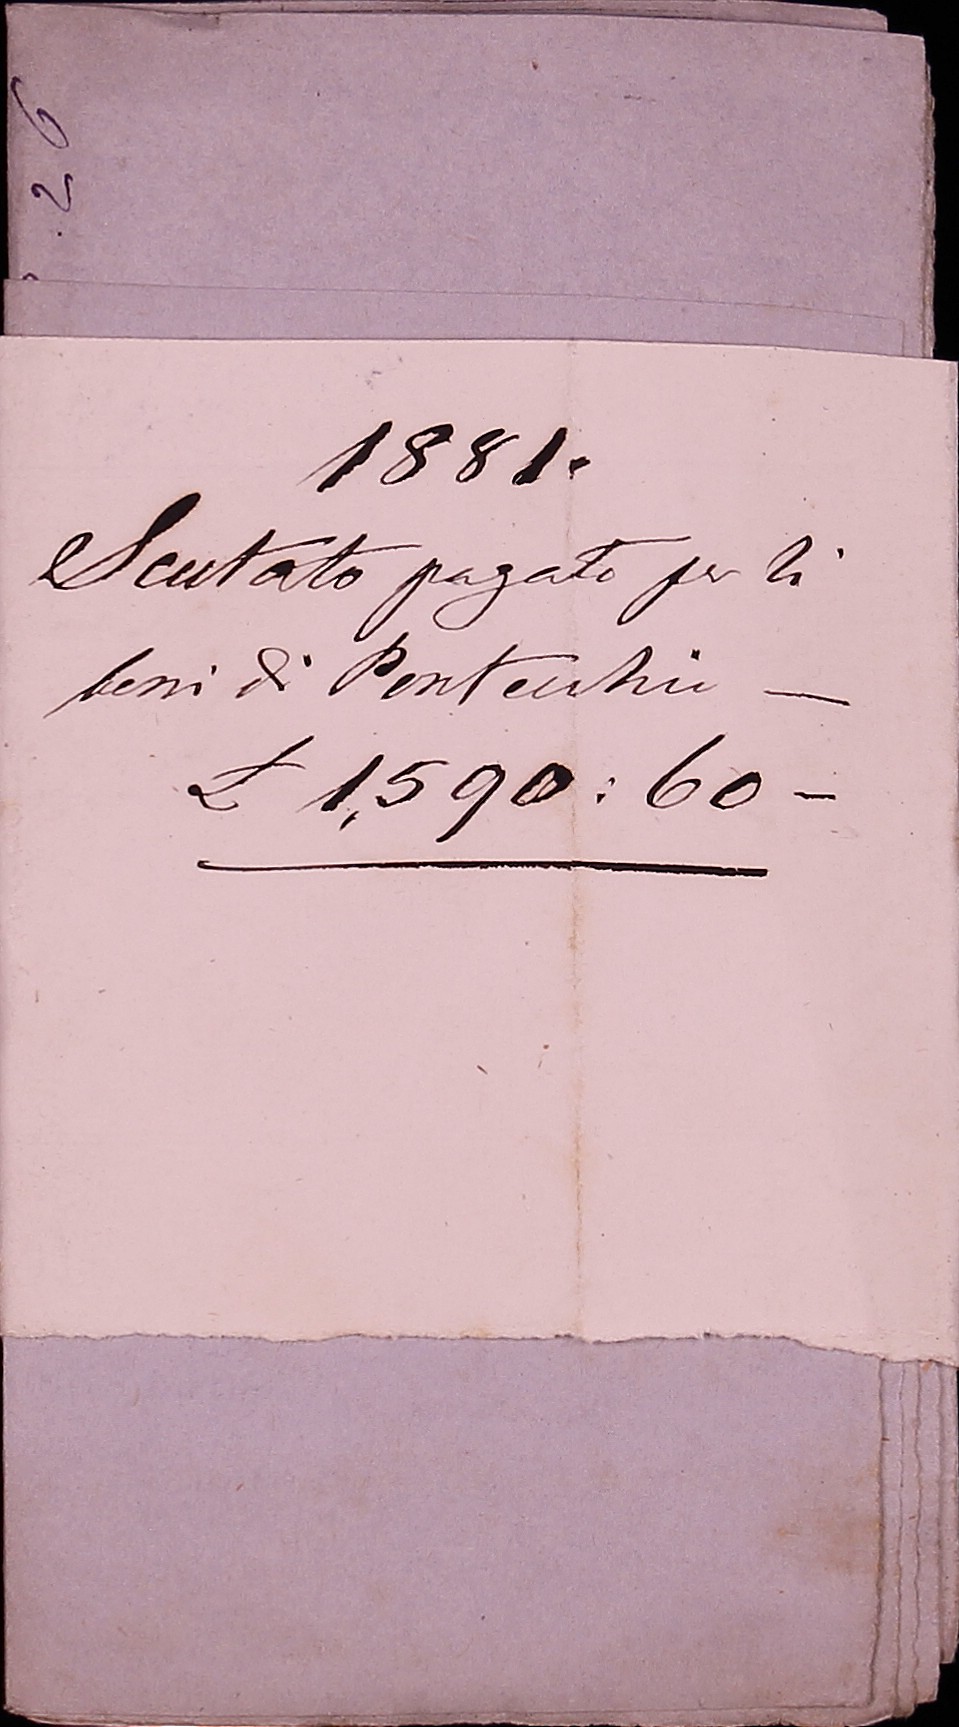 26
1881.
Scutato pagato per li
beni di Pontecchio —
£ 1,590:60 —